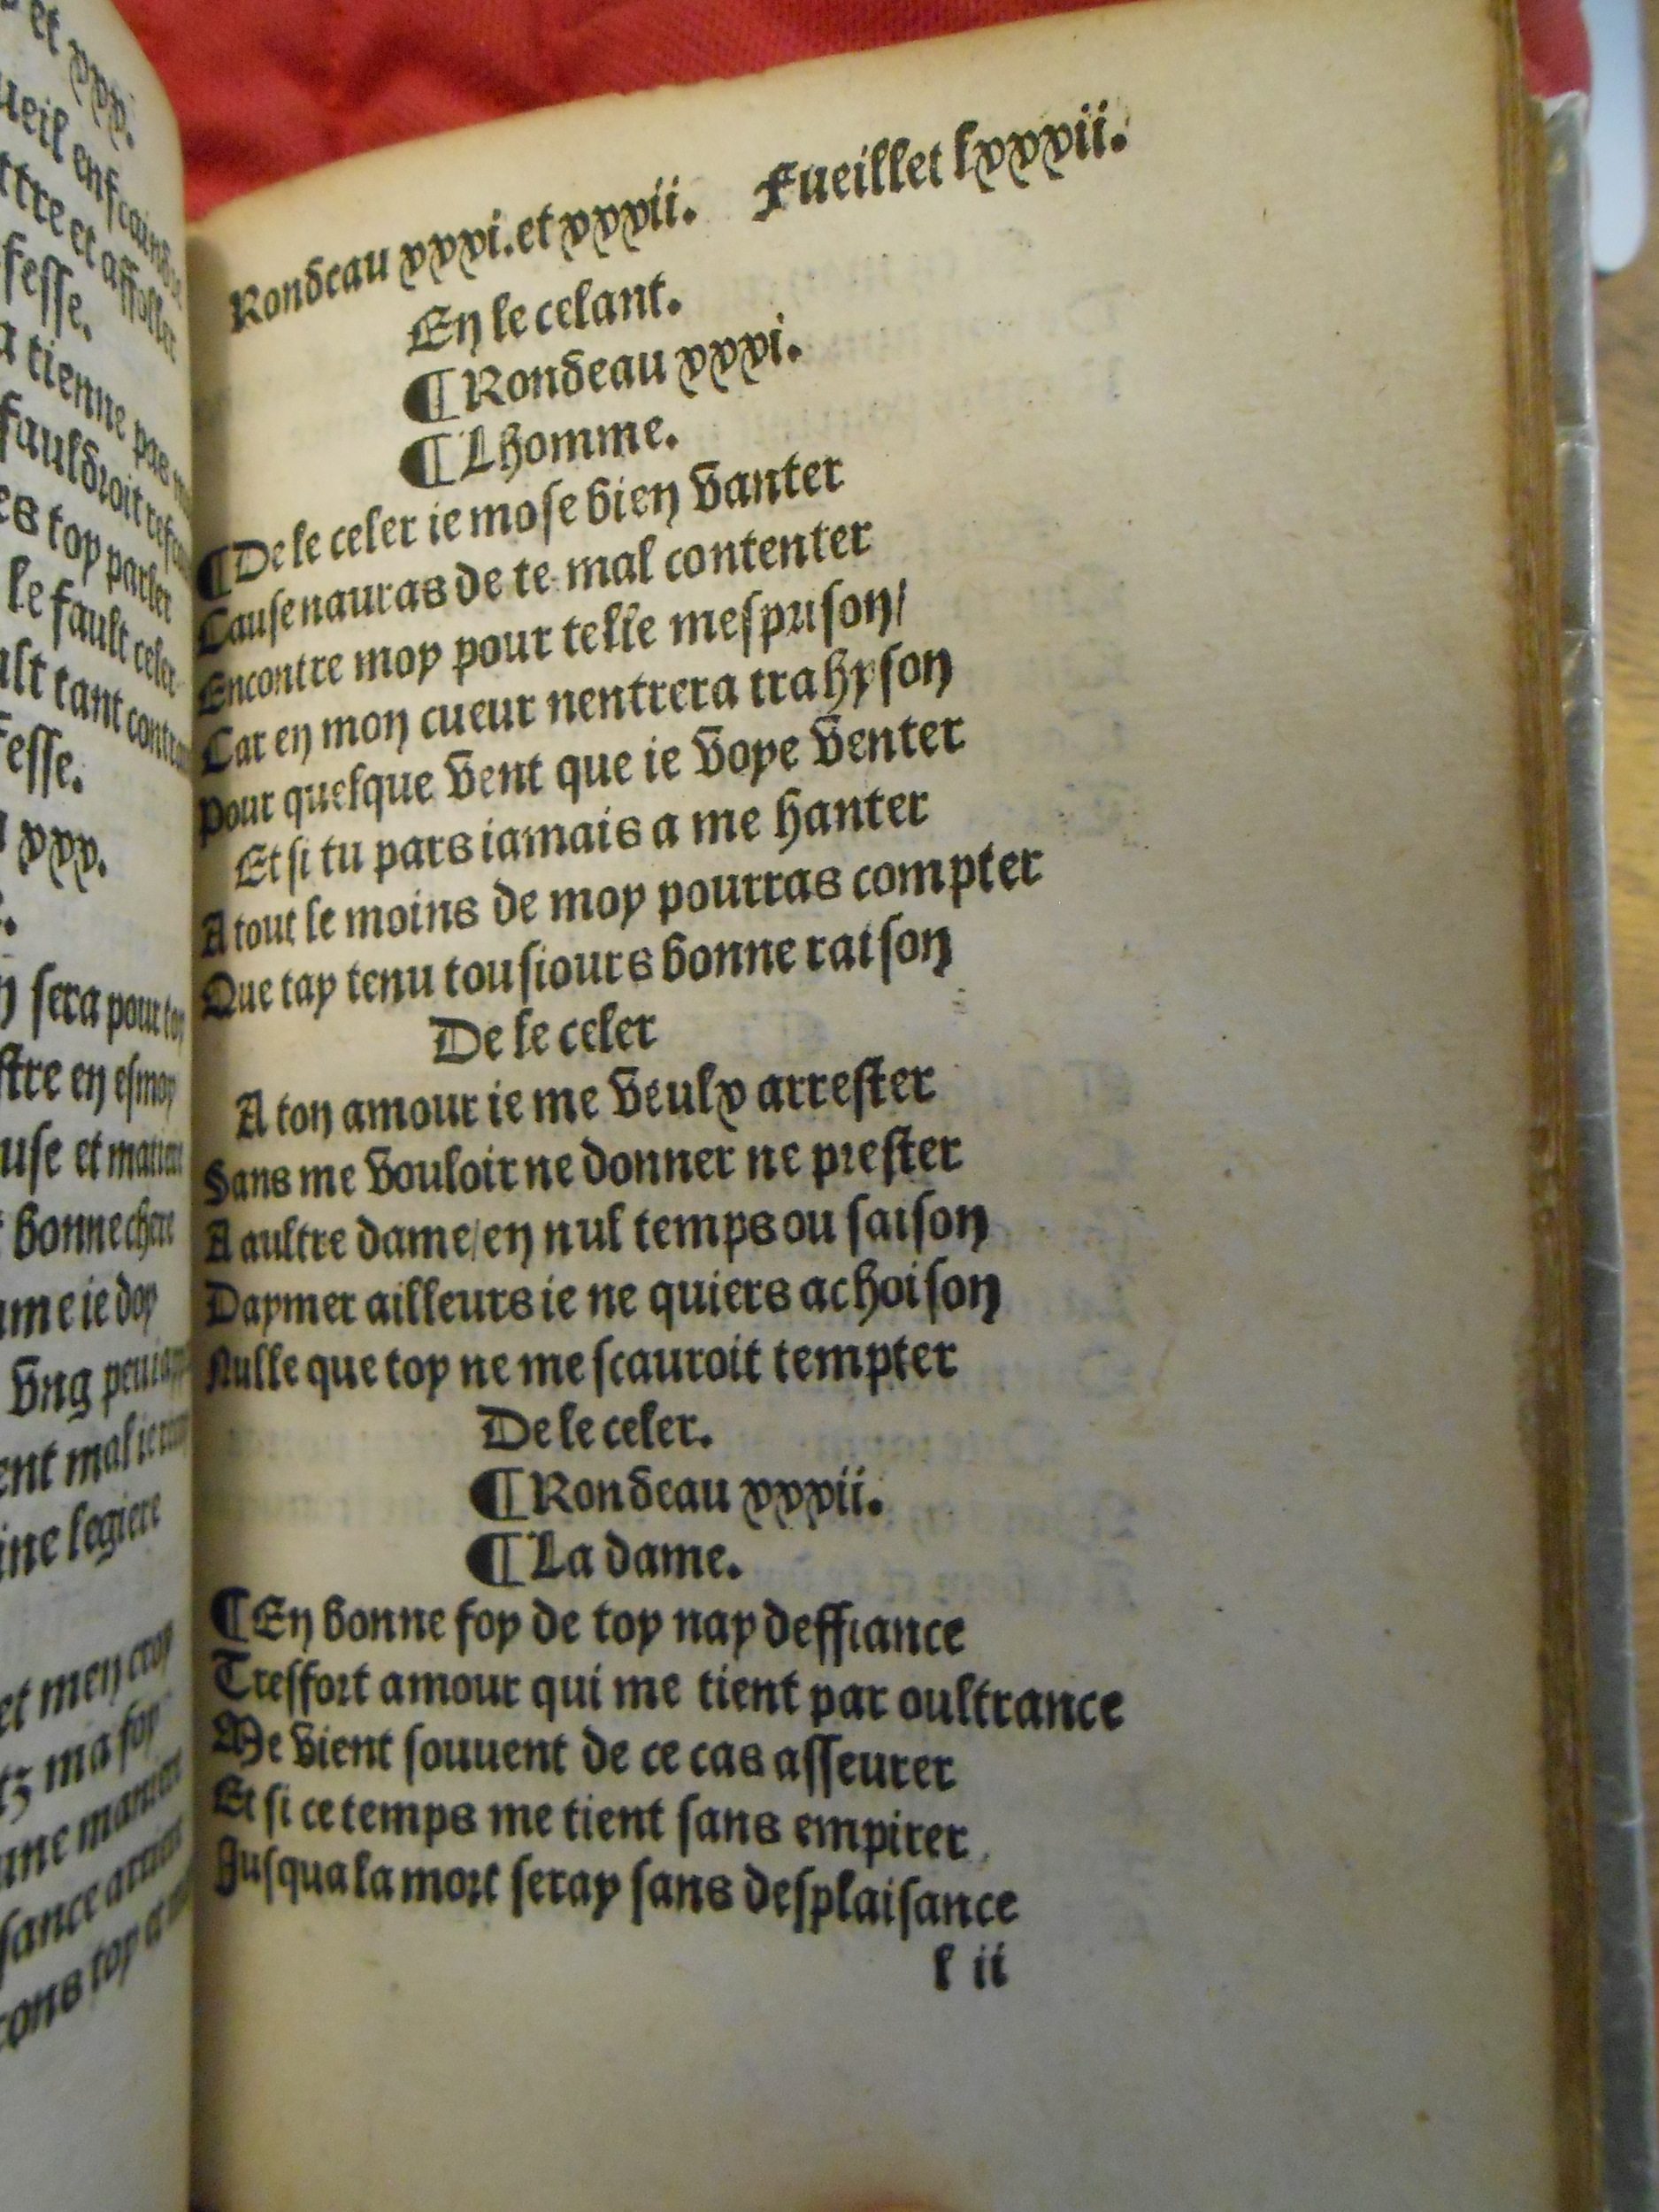 et xxx.
ueil
ttre et affoller
fesse.
a tienne pas
fauldroit
es toy parler
le fault celer
ult tant
fesse.
xxx.
n sera pour toy
stre en esmoy
use et
bonne chere
ame ie doy
vng peu
ent mal
ine legiere
et men croy
tz ma foy
une maniere
sance
cons toy
Rondeau xxxi. et xxxii. Fueillet lxxxii.
En le celant.
¶ Rondeau xxxi.
¶ Lhomme.
¶ De le celer ie mose bien vanter
Cause nauras de te mal contenter
Encontre moy pour telle mesprison/
Car en mon cueur nentrera trahyson
Pour quelque vent que ie voye venter
Et si tu pars iamais a me hanter
A tout le moins de moy pourras compter
Que tay tenu tousiours bonne raison
De le celer
A ton amour ie me veulx arrester
Sans me vouloir ne donner ne prester
A aultre dame/en nul temps ou saison
Daymer ailleurs ie ne quiers achoison
Nulle que toy ne me scauroit tempter
De le celer.
¶ Rondeau xxxii.
¶ La dame.
¶ En bonne foy de toy nay deffiance
Tresfort amour qui me tient par oultrance
Me vient souuent de ce cas asseurer
Et si ce temps me tient sans empirer
Jusqua la mort seray sans desplaisance
l ii